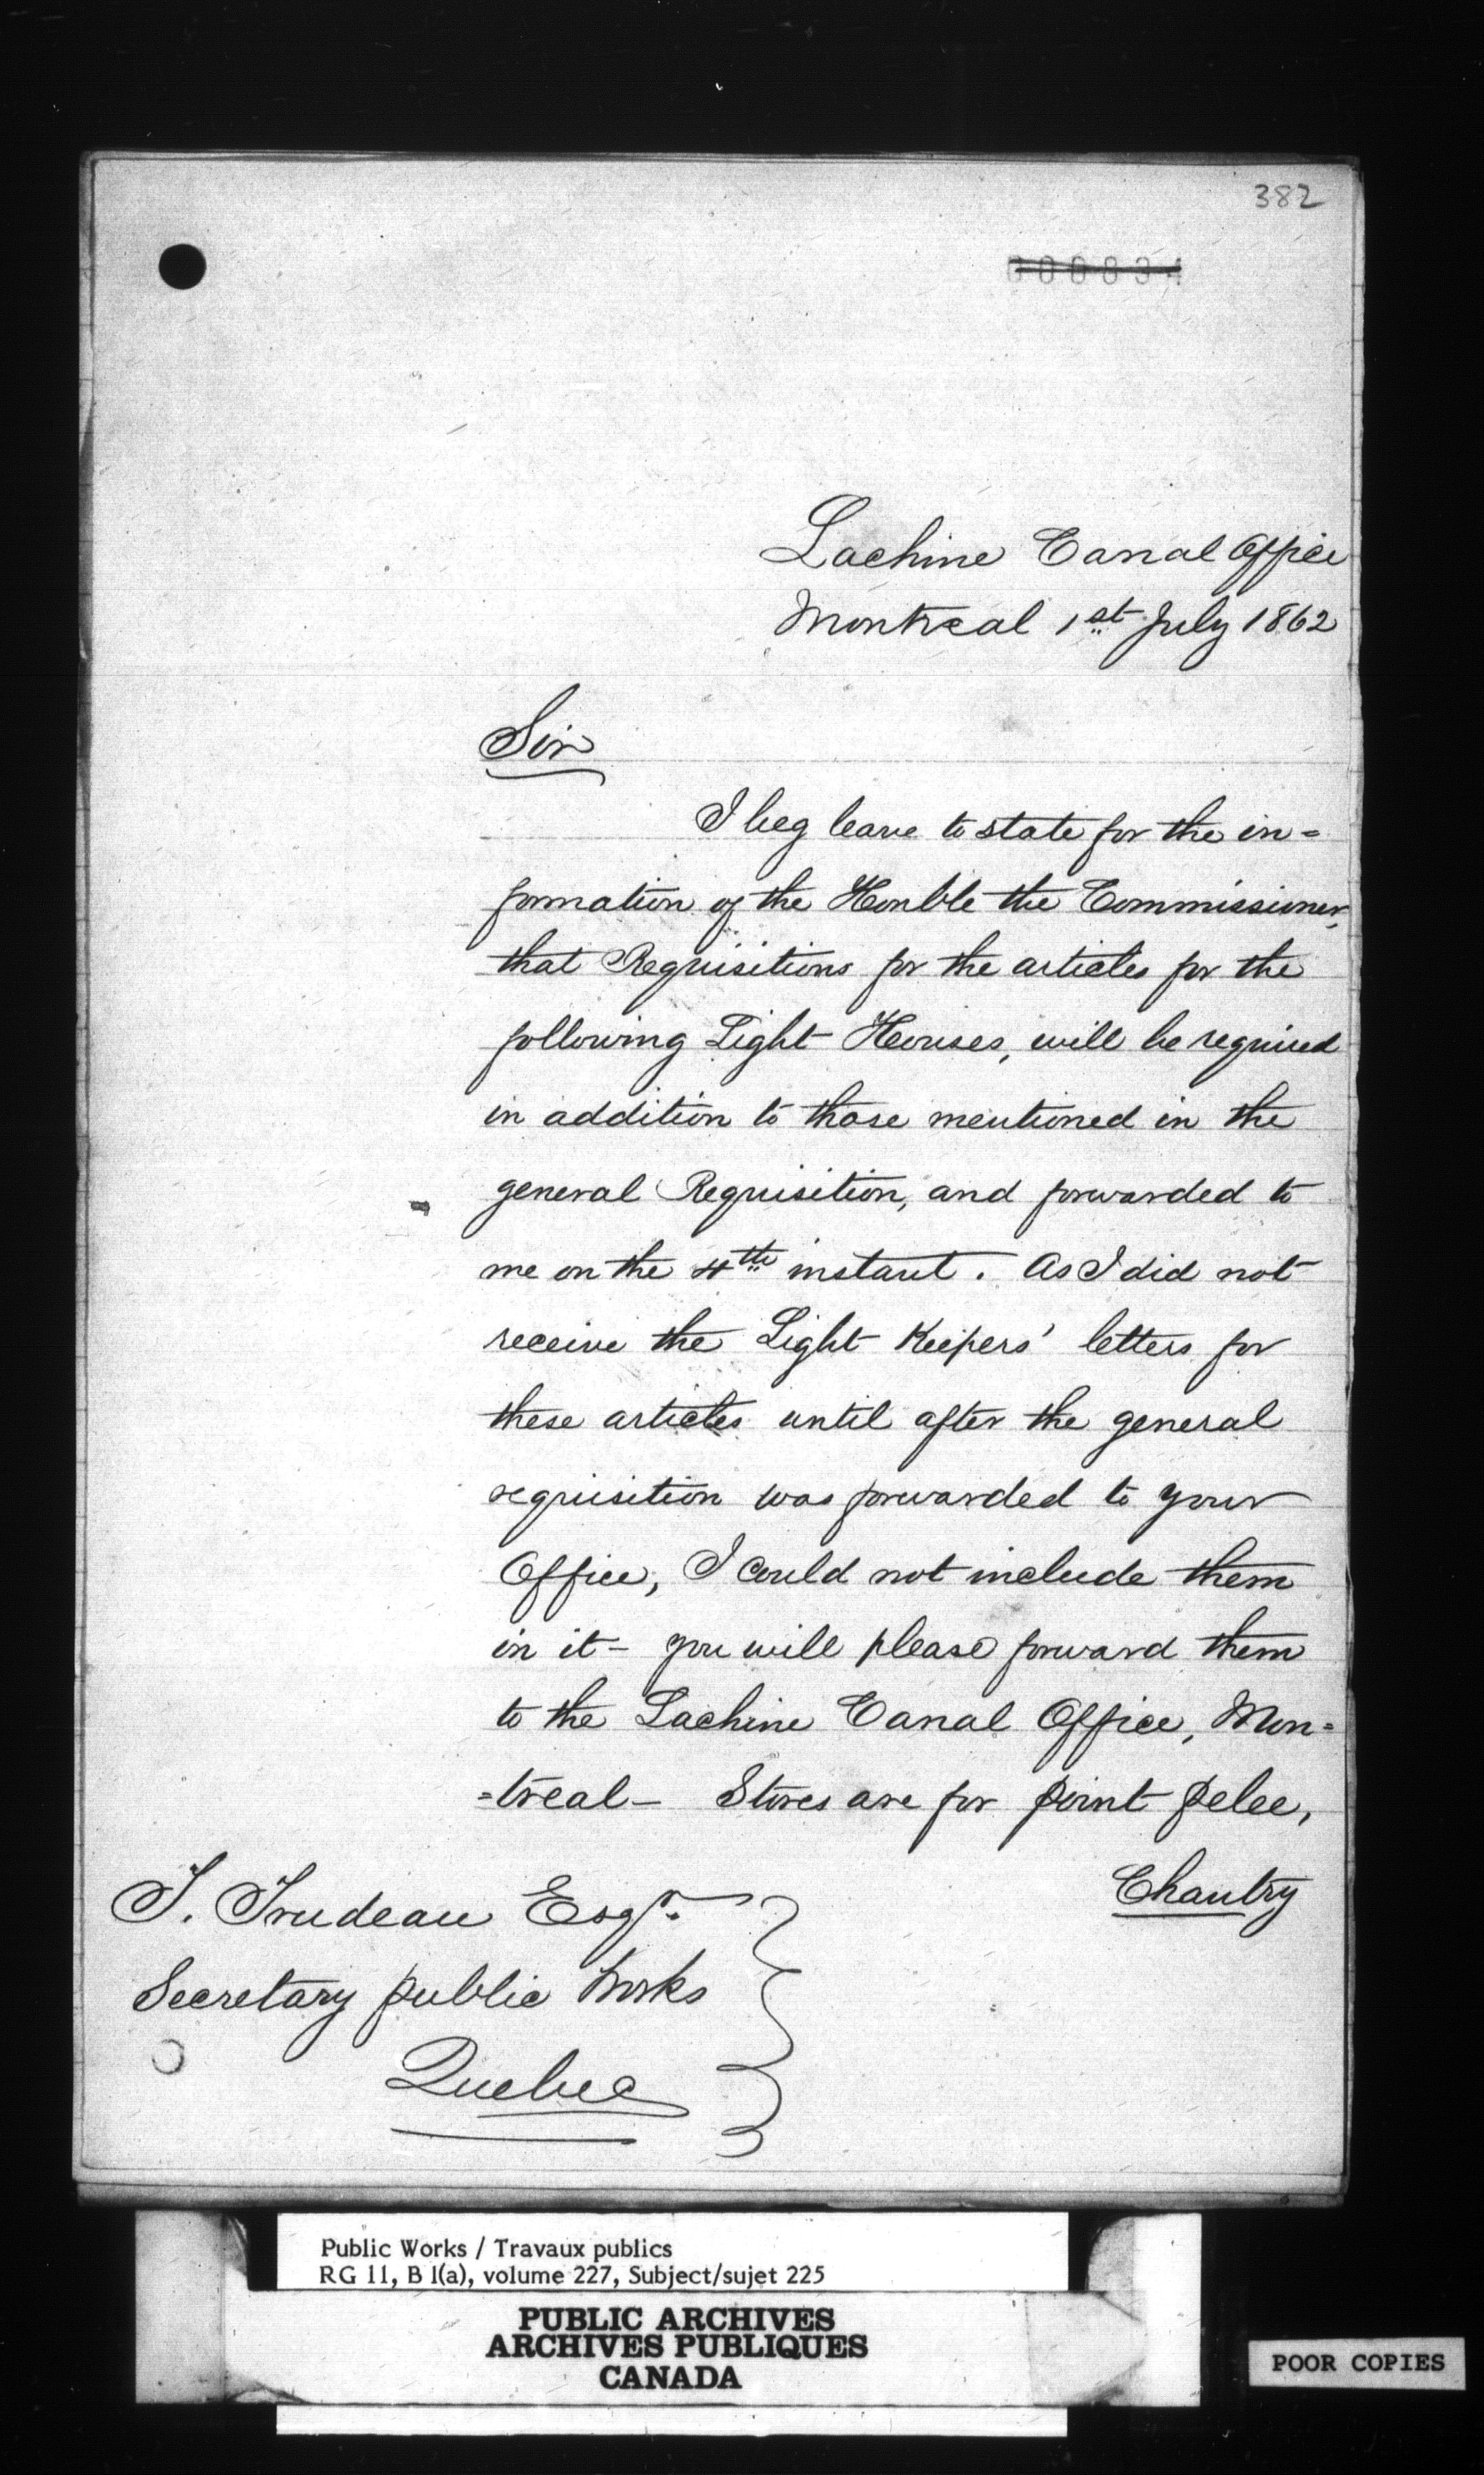 382
Lachine Canal Office
Montreal 1st July 1862
Sir
I beg leave to state for the in=
formation of the Honble the Commissioner,
that Requisitions for the articles for the
following Light Houses, will be required
in addition to those mentioned in the
general Requisition, and forwarded to
me on the 4th instant. As I did not
receive the Light Keepers' letters for
these articles until after the general
requisition was forwarded to your
Office, I could not include them
in it - you will please forward them
to the Lachine Canal Office, Mon=
=treal - Stores are for point pelee,
Chantry
T. Trudeau Esqr.
Secretary public Works
Quebec
Public Works / Travaux publics
RG 11, B 1(a), volume 227, Subject/sujet 225
PUBLIC ARCHIVES
ARCHIVES PUBLIQUES
CANADA
POOR COPIES